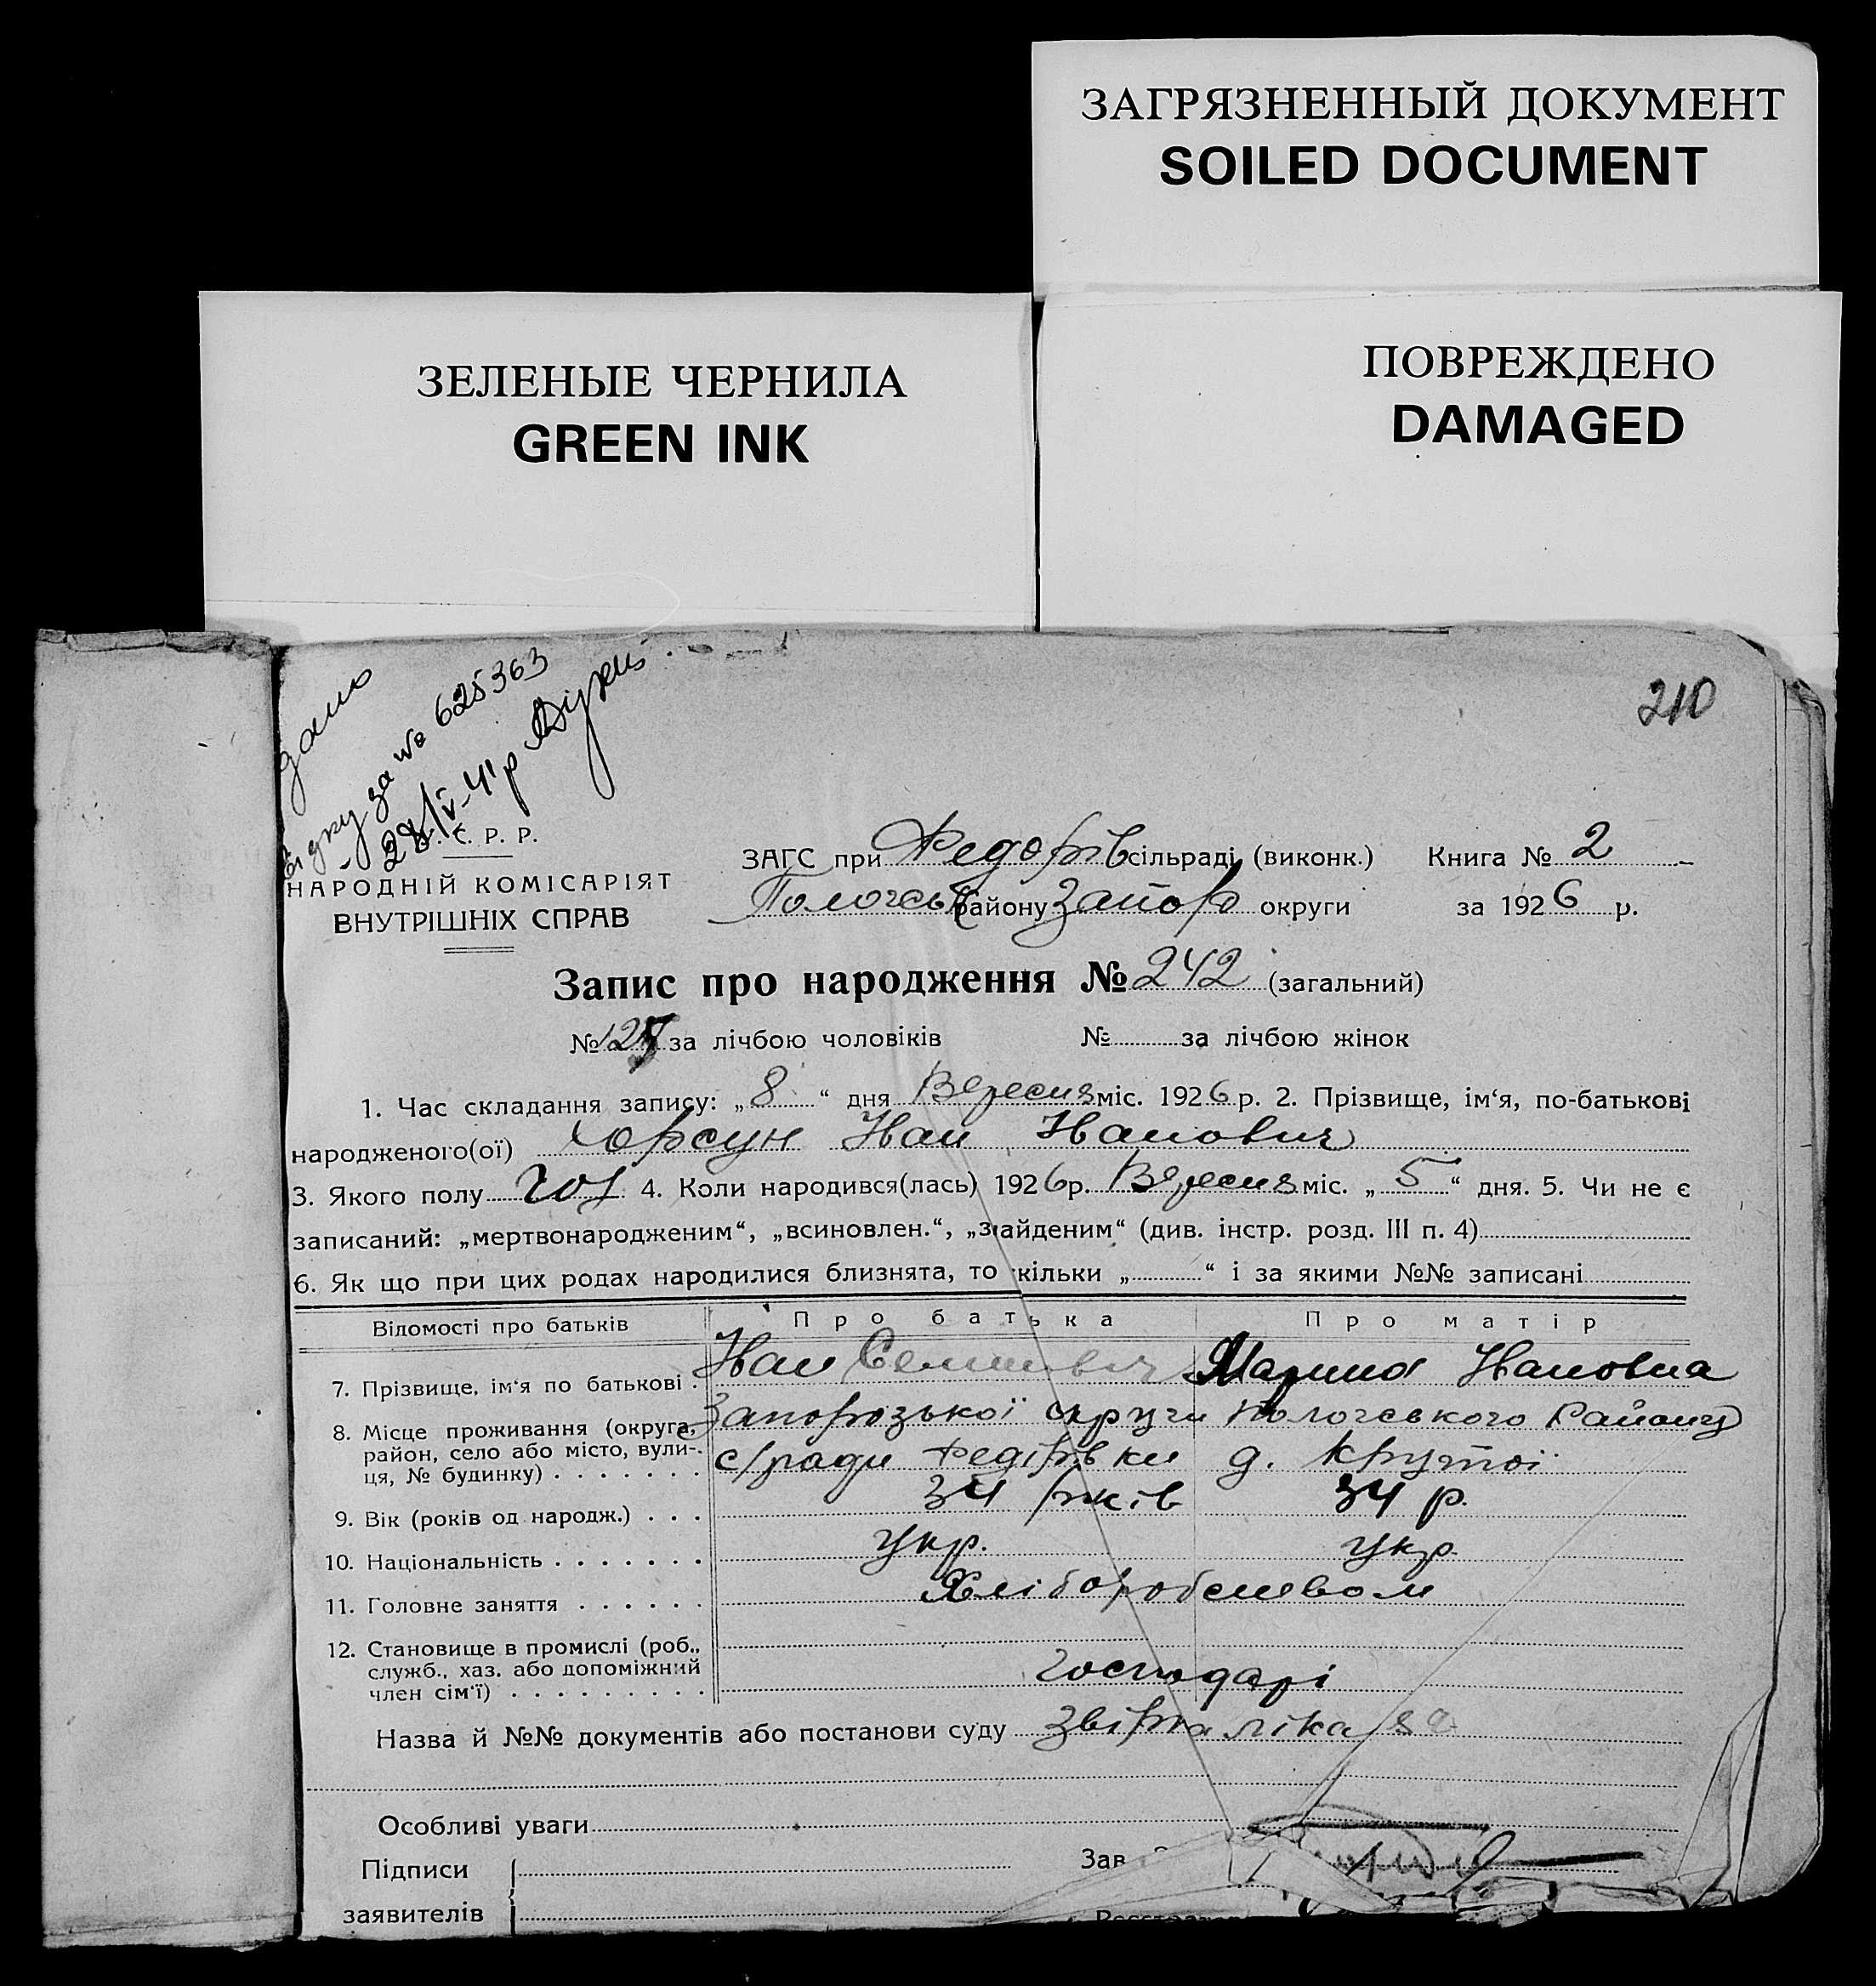 ЗАГРЯЗНЕННЫЙ ДОКУМЕНТ
SOILED DOCUMENT
ЗЕЛЕНЫЕ ЧЕРНИЛА
GREEN INK
ПОВРЕЖДЕНО
DAMAGED
210
за № 625363
28/V-41р
С. Р. Р.
НАРОДНІЙ КОМІСАРІЯТ
ВНУТРІШНІХ СПРАВ
ЗАГС при Федорів сільраді (виконк.) Книга № 2
району Запор округи за 1926 р.
Запис про народження № 242 (загальний)
№ 127 за лічбою чоловіків № за лічбою жінок
1. Час складання запису: „8“ дня Вересня міс. 1926 р. 2. Прізвище, ім‘я, по-батькові
народженого(ої) Іван Іванович
3. Якого полу чол 4. Коли народився(лась) 1926р. Вересня міс. „5“ дня. 5. Чи не є
записаний: „мертвонародженим“, „всиновлен.“, „знайденим“ (див. інстр. розд. III п. 4)
6. Як що при цих родах народилися близнята, то скільки „ “ і за якими №№ записані
Відомості про батьків Про батька Про матір
7. Прізвище, ім‘я по батькові Іван Марина Ивановна
8. Місце проживання (округа, Запорізької округи Пологовського Району
район, село або місто, вули- с/ради Федірівки д. Крутої
ця, № будинку)
9. Вік (років од народж.) 34 років 34 р.
10. Національність укр. укр.
11. Головне заняття Хліборобством
12. Становище в промислі (роб.,
служб., хаз. або допоміжний господарі
член сім‘ї)
Назва й №№ документів або постанови суду
Особливі уваги
Підписи Зав
заявителів